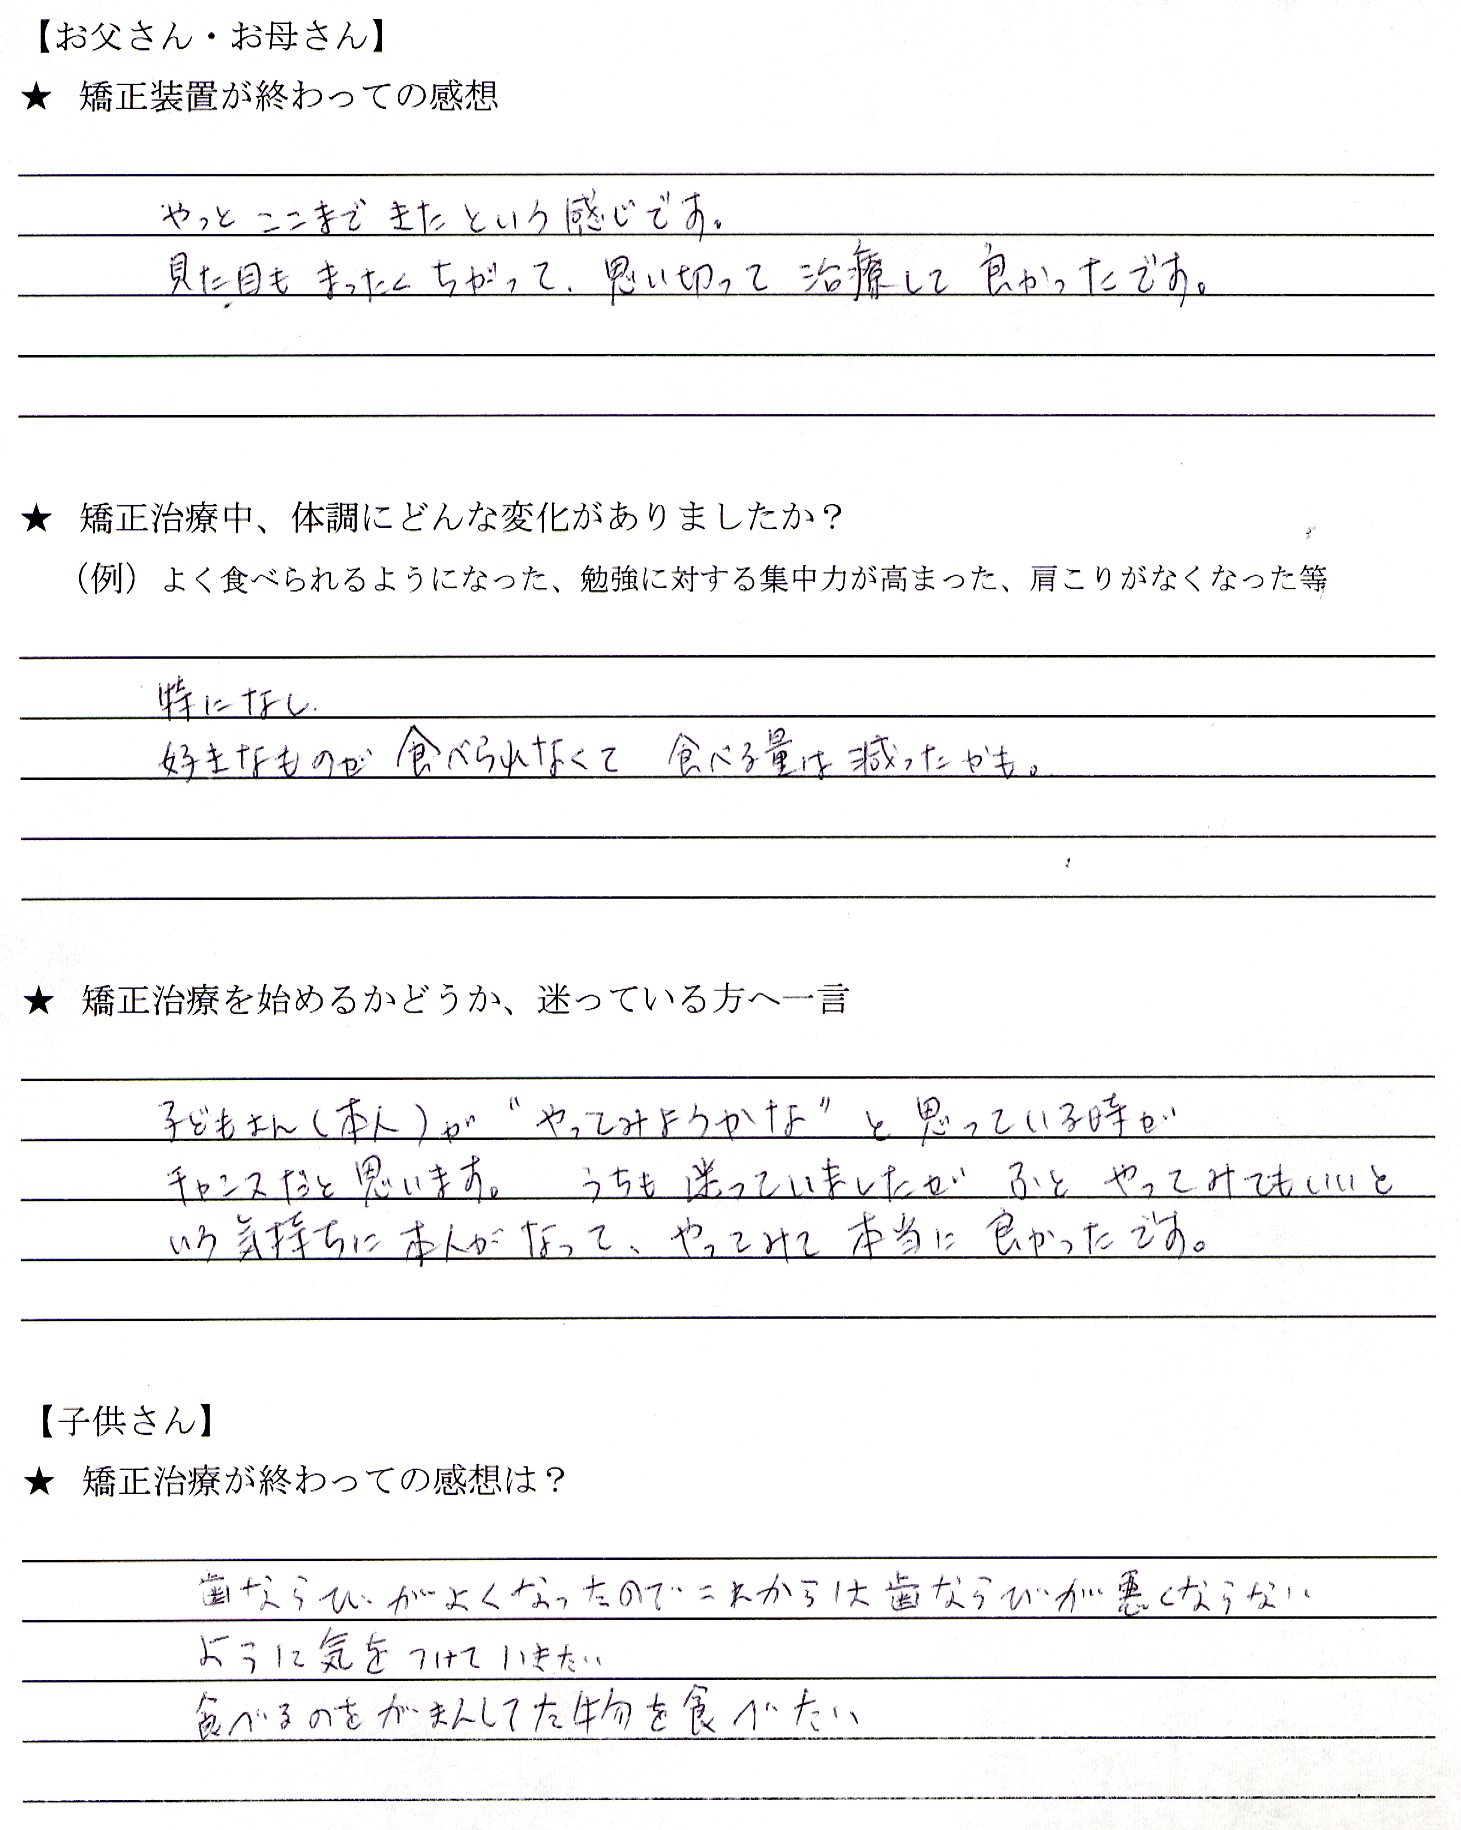 【お父さん・お母さん】
★ 矯正装置が終わっての感想
やっと ここまで きた という 感じです。
見た目も まったく ちがって、思い切って 治療して 良かったです。
★ 矯正治療中、体調にどんな変化がありましたか？
（例）よく食べられるようになった、勉強に対する集中力が高まった、肩こりがなくなった等
特になし.
好きなものが 食べられなくて 食べる量は 減ったかも。
★ 矯正治療を始めるかどうか、迷っている方へ一言
子どもさん（本人）が “やってみようかな” と 思っている時が
チャンスだと 思います。 うちも 迷っていましたが ふと やってみてもいいと
いう 気持ちに 本人が なって、やってみて 本当に 良かったです。
【子供さん】
★ 矯正治療が終わっての感想は？
歯ならびがよくなったのでこれからは歯ならびが悪くならない
ように気をつけていきたい
食べるのをがまんしてた物を食べたい